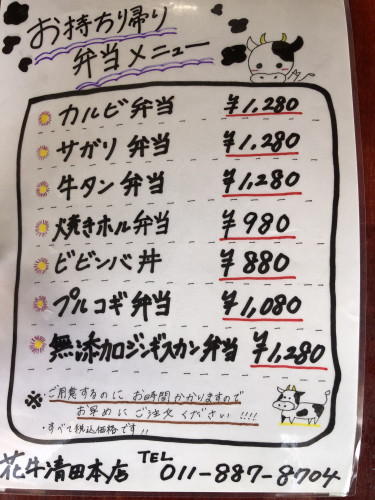 お持ち帰り
弁当メニュー
カルビ弁当 ¥1,280
サガリ弁当 ¥1,280
牛タン弁当 ¥1,280
焼きホル弁当 ¥980
ビビンバ丼 ¥880
プルコギ弁当 ¥1,080
無添加ジンギスカン弁当 ¥1,280
※ご用意するのにお時間かかりますので
お早めにご注文ください!!!!
・すべて税込価格です!!
花牛清田本店 TEL 011-887-8704